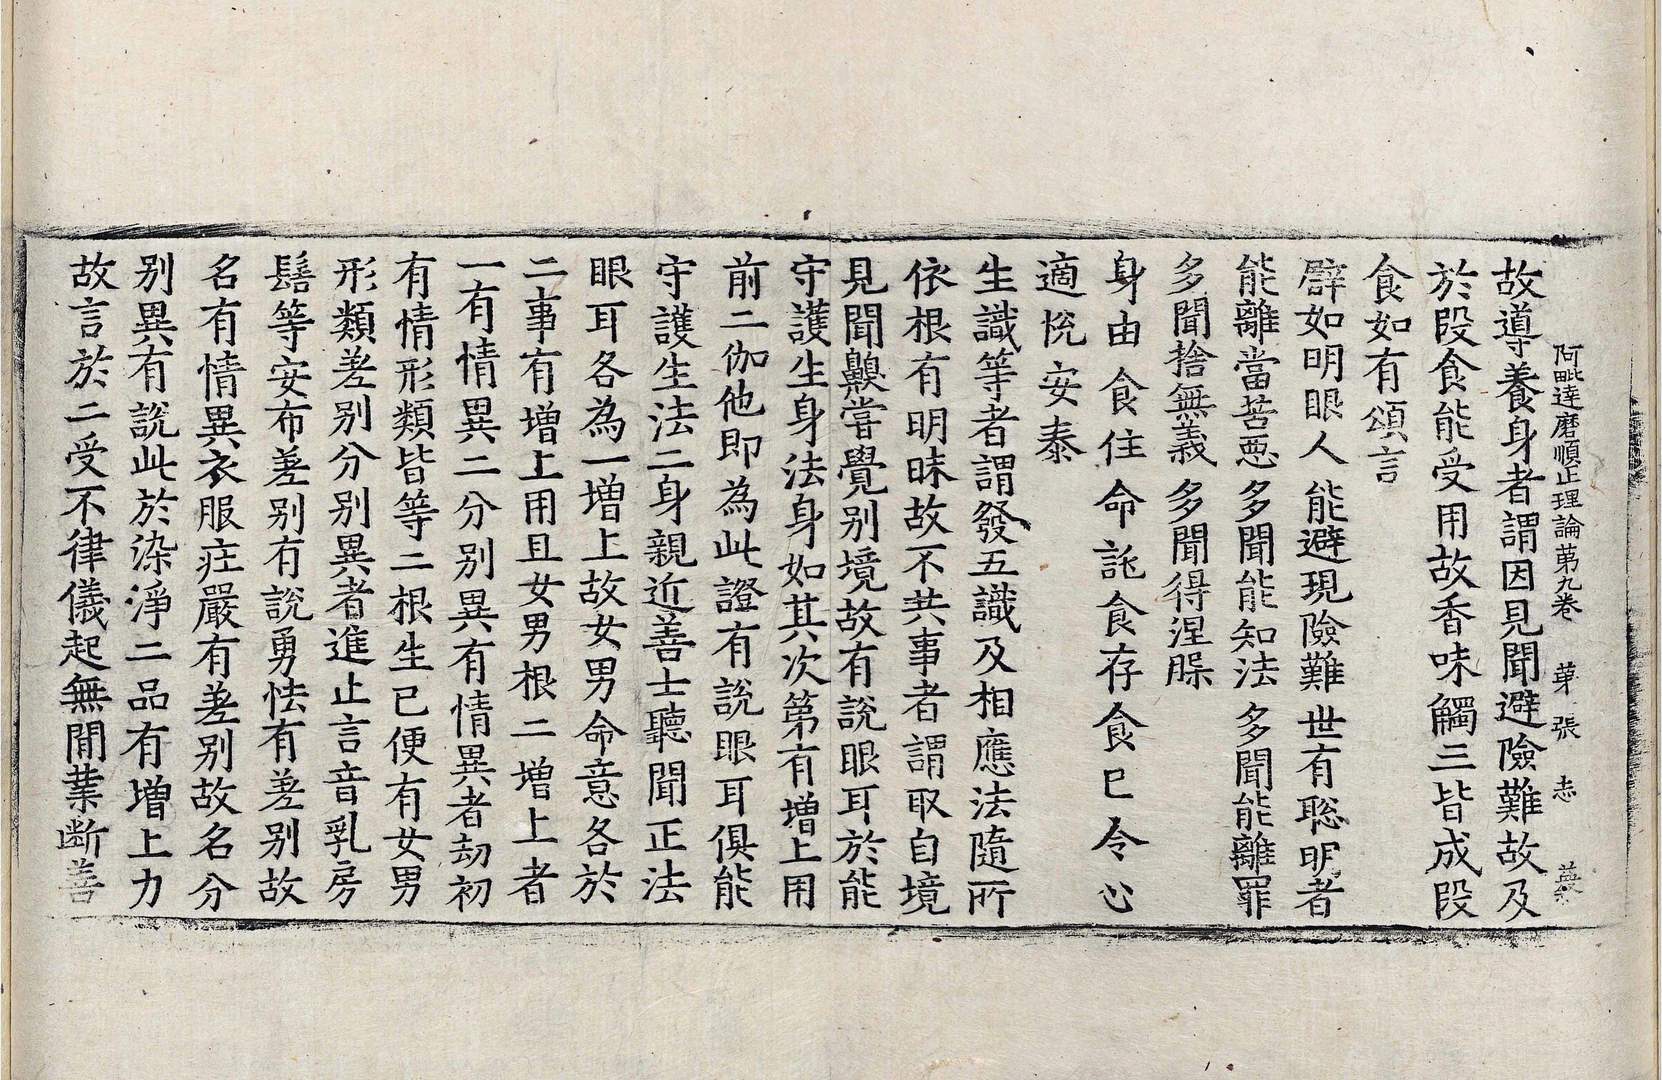 阿毗達磨順正理論苐九卷 苐 張 志
故導養身者謂因見聞避險難故及
於段食能受用故香味觸三皆成段
食如有頌言
譬如明眼人 能避現險難 世有聡明者
能離當苦惡 多聞能知法 多聞能離罪
多聞捨無義 多聞得涅槃
身由食住 命託食存 食已令心
適悅安泰
生識等者謂發五識及相應法隨所
依根有明昧故不共事者謂取自境
見聞齅甞覺別境故有說眼耳於能
守護生身法身如其次第有增上用
前二伽他即為此證有說眼耳俱能
守護生法二身親近善士聽聞正法
眼耳各為一增上故女男命意各於
二事有增上用且女男根二增上者
一有情異二分別異有情異者劫初
有情形類皆等二根生已便有女男
形類差別分別異者進止言音乳房
髻等安布差別有說勇怯有差別故
名有情異衣服莊嚴有差別故名分
別異有說此於染淨二品有增上力
故言於二受不律儀起無閒業斷善